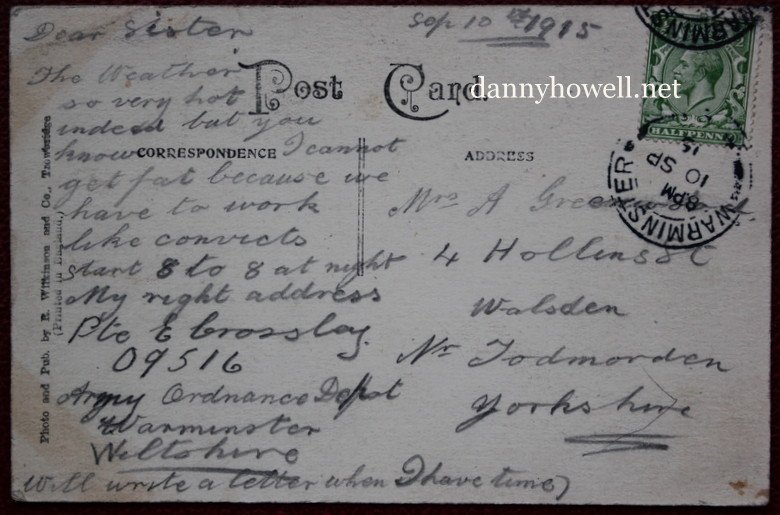 Dear Sister
Sep 10th 1915
The Weather
so very hot
indeed but you
know I cannot
get fat because we
have to work
like convicts
start 8 to 8 at night
My right address
Pte E Crossley
09516
Army Ordnance Depot
Warminster
Wiltshire
Will write a letter when I have time)
Post Card.
dannyhowell.net
CORRESPONDENCE
ADDRESS
Mrs A
4 Hollins St
Walsden
Nr Todmorden
Yorkshire
HALFPENNY
WARMINSTER
8 PM
10 SP
15
Photo and Pub. by R. Wilkinson and Co., Trowbridge
(Printed in England.)